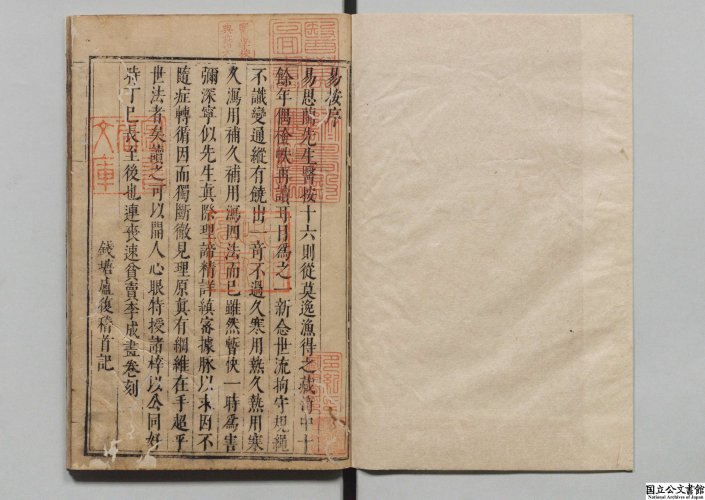 易按序
易思蘭先生醫按十六則從莫逸漁得之藏笥中十
餘年偶檢帙再讀耳目為之一新念世流拘守規繩
不識變通縱有饒出一奇不過久寒用熱久熱用寒
久瀉用補久補用瀉四法而已雖然暫快一時為害
彌深寧似先生真際理諦精詳縝審據脉以求因不
隨症轉循因而獨斷徹見理原真有綱維在手超乎
世法者矣讀之可以開人心眼特授諸梓以公同好
時丁巳長至後也連喪速貧賣李成畫卷刻
錢塘盧復稽首記
文庫
国立公文書館
National Archives of Japan